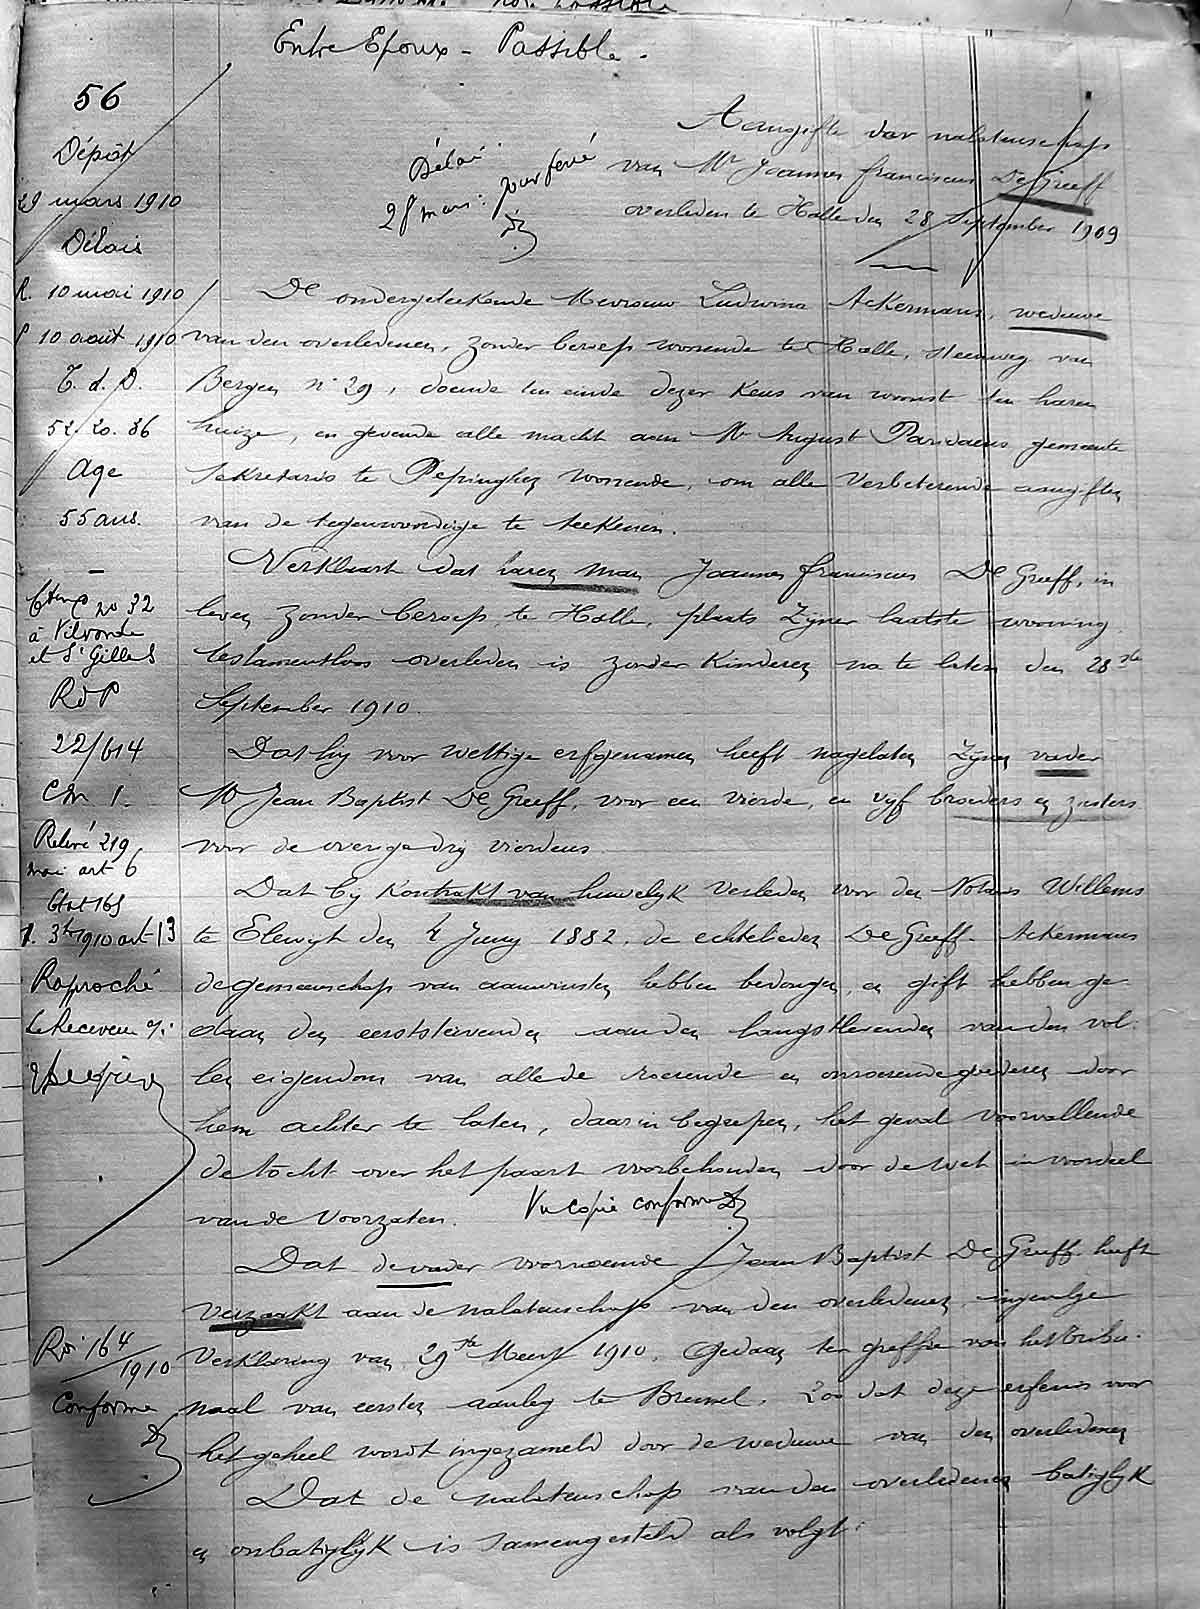 Entre Epoux - Passible.
56
Dépôt
29 mars 1910
Délais
R. 10 mai 1910
P 10 août 1910
T. d. D.
52. 20. 86
Age
55 ans.
no 32
à Vilvorde
et St Gilles
RdP
22/614
Cm 1.
Relevé 219
mai art 6
Etat 165
1910 art 13
Rapproché
Le Receveur
Roi 164
1910
Conforme
Délai
28 mars: jour férié
Aangifte der nalatenschap
van Mr Joannes franciscus De Greeff
overleden te Halle den 28 September 1909
De ondergeteekende Mevrouw Ludwina Ackermans, weduwe
van den overledenen, zonder beroep woonende te Halle, steenweg van
Bergen n° 29, doende ten einde dezer keus van woonst ten haren
huize, en gevende alle macht aan Mr August Paridaens gemeente
sekretaris te Pepinghen woonende, om alle verbeterende aangiften
van de tegenwoordige te teekenen.
Verklaart dat haren man Joannes franciscus De Greeff, in
leven zonder beroep, te Halle, plaats zijner laatste wooning
testamentloos overleden is zonder kinderen na te laten den 28ste
September 1910.
Dat hij voor wettige erfgenamen heeft nagelaten zijnen vader
Mr Jean Baptist De Greeff, voor een vierde, en vijf broeders en zusters
voor de overige drij vierdens.
Dat bij kontrakt van huwelijk verleden voor den Notaris Willems
te Elewyt den 4 Juny 1882, de echtelieden De Greeff - Ackermans
de gemeenschap van aanwinsten hebben bedongen, en gift hebben ge-
daan den eerststervenden aan den langstlevenden van den vol-
len eigendom van alle de roerende en onroerende goederen door
hem achter te laten, daarin begrepen, het geval voorvallende
de tocht over het paart voorbehouden door de wet in voordeel
van de voorzaten. Vu copie conforme
Dat de vader voornoemde Jean Baptist De Greeff heeft
verzaakt aan de nalatenschap van den overledenen ingevolge
verklaring van 29ste Meert 1910, gedaan ter greffie van het tribu-
naal van eersten aanleg te Brussel, zoo dat deze erfenis voor
het geheel wordt ingezameld door de weduwe van den overledenen
Dat de nalatenschap van den overledenen batiglijk
en onbatiglijk is samengesteld als volgt: